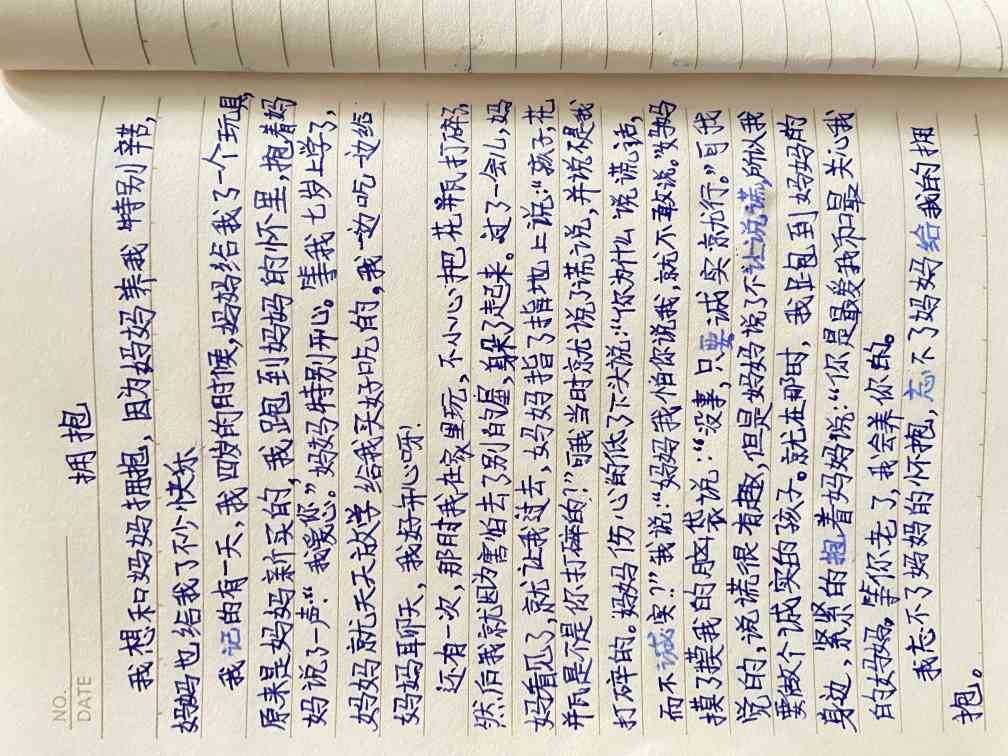 NO.
DATE
拥抱
我想和妈妈拥抱，因为妈妈养我特别辛苦，
妈妈也给我了不少快乐
我记的有一天，我四岁的时候，妈妈给我了一个玩具，
原来是妈妈新买的，我跑到妈妈的怀里，抱着妈
妈说了一声“我爱您。”妈妈特别开心。等我七岁上学了，
妈妈就天天放学给我买好吃的，我一边吃一边给
妈妈聊天，我好开心呀.
还有一次，那时我在家里玩，不小心把花瓶打碎了，
然后我就因为害怕去了别的屋，躲了起来。过了一会儿，妈
妈看见了，就让我过去，妈妈指了指地上说：“孩子，花
瓶是不是你打碎的？”可我当时就说了谎说，并说不是我
打碎的。妈妈伤心的低了下头说：“你为什么说谎话，
而不诚实？”我说：“妈妈我怕你说我，就不敢说。”妈妈
摸了摸我的脑袋说：“没事，只要诚实就行。”可我
觉的，说谎很有趣，但是妈妈说了不让说谎，所以我
要做个诚实的孩子。就在那时，我跑到妈妈的
身边，紧紧的抱着妈妈说：“你是最爱我和最关心我
的妈妈。等你老了，我会养你的。
我忘不了妈妈的怀抱，忘不了妈妈给我的拥
抱。